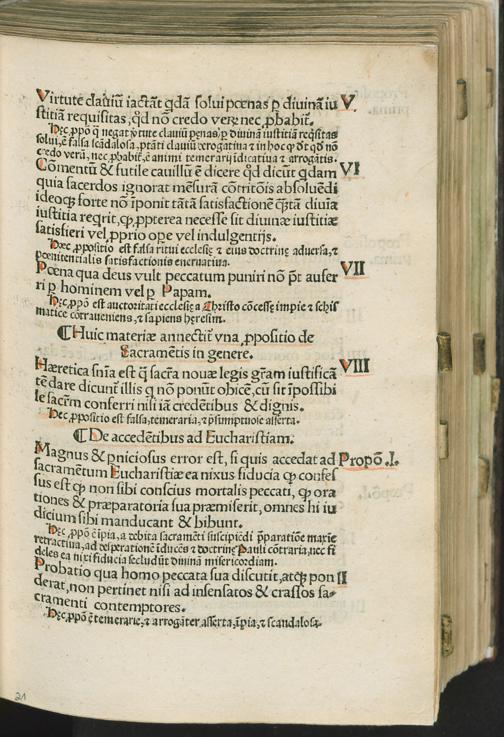 Virtute clauiũ iactãt q̃dã solui pœnas ꝑ diuinã iu V.
stitiã requisitas, qd nõ credo vere nec ꝓbabiľ.
Hęc ꝓpõ q̃ negat ṽtute clauiũ pẽnas ꝑ diuinã iusticiã reqsitas
solui, ẽ falsa scãdalosa, ptãti clauiũ derogatiua ⁊ in hoc ꝙ dt qd nõ
credo verũ, nec ꝓbabiľ, ẽ animi temerarij ĩdicatiua ⁊ arrogãtis.
Cõmentũ & futile cauillũ ẽ dicere qd dicũt qdam VI
quia sacerdos ignorat mẽsurã cõtritõis absoluẽdi
ideoq forte nõ ĩponit tãtã satisfactionẽ q̃tã diuĩa
iustitia reqrit, ꝙ, ꝓpterea necesse sit diuinæ iustitiæ
satisfieri vel ꝓprio oꝑe vel indulgentijs.
Hæc ꝓpositio est falsa ritui ecclesię ⁊ eius doctrinę aduersa, ⁊
pœnitentialis satisfactionis eneruatiua.
Pœna qua deus vult peccatum puniri nõ põt aufer VII
ri ꝑ hominem vel ꝑ Papam.
Hęc, ꝓpõ est auctoritati ecclesię a Christo cõcessę impie ⁊ schis
matice cõtraueniens, ⁊ sapiens hęresim.
Huic materiæ annectit̃ vna ꝓpositio de
Sacramẽtis in genere.
Hæretica snĩa est q̃ sacra nouæ legis grãm iustificã VIII
tẽ dare dicunt̃ illis q nõ ponũt obicẽ, cũ sit ĩpossibi
le sacr̃m conferri nisi iã credẽtibus & dignis.
Hęc ꝓpositio est falsa, temeraria, ⁊ p̃sumptuose asserta.
De accedẽtibus ad Eucharistiam.
Magnus & ꝑniciosus error est, si quis accedat ad Propõ .I.
sacramẽtum Eucharistiæ ea nixus fiducia ꝙ confes
sus est ꝙ non sibi conscius mortalis peccati, ꝙ ora
tiones & præparatoria sua præmiserit, omnes hi iu
dicium sibi manducant & bibunt.
Hęc, ꝓpõ ẽ ĩpia, a debita sacramẽti suscipiẽdi p̃paratiõe maxĩe
retractiua, ad desperationẽ ĩducẽs ⁊ doctrinę Pauli cõtraria, nec fi
deles ea nixi fiducia secludũt diuinã misericordiam.
Probatio qua homo peccata sua discutit, atq pon II
derat, non pertinet nisi ad insensatos & crassos sa-
cramenti contemptores.
Hęc, ꝓpõ ẽ temerarie, ⁊ arrogãter asserta, ĩpia, ⁊ scandalosa.
21